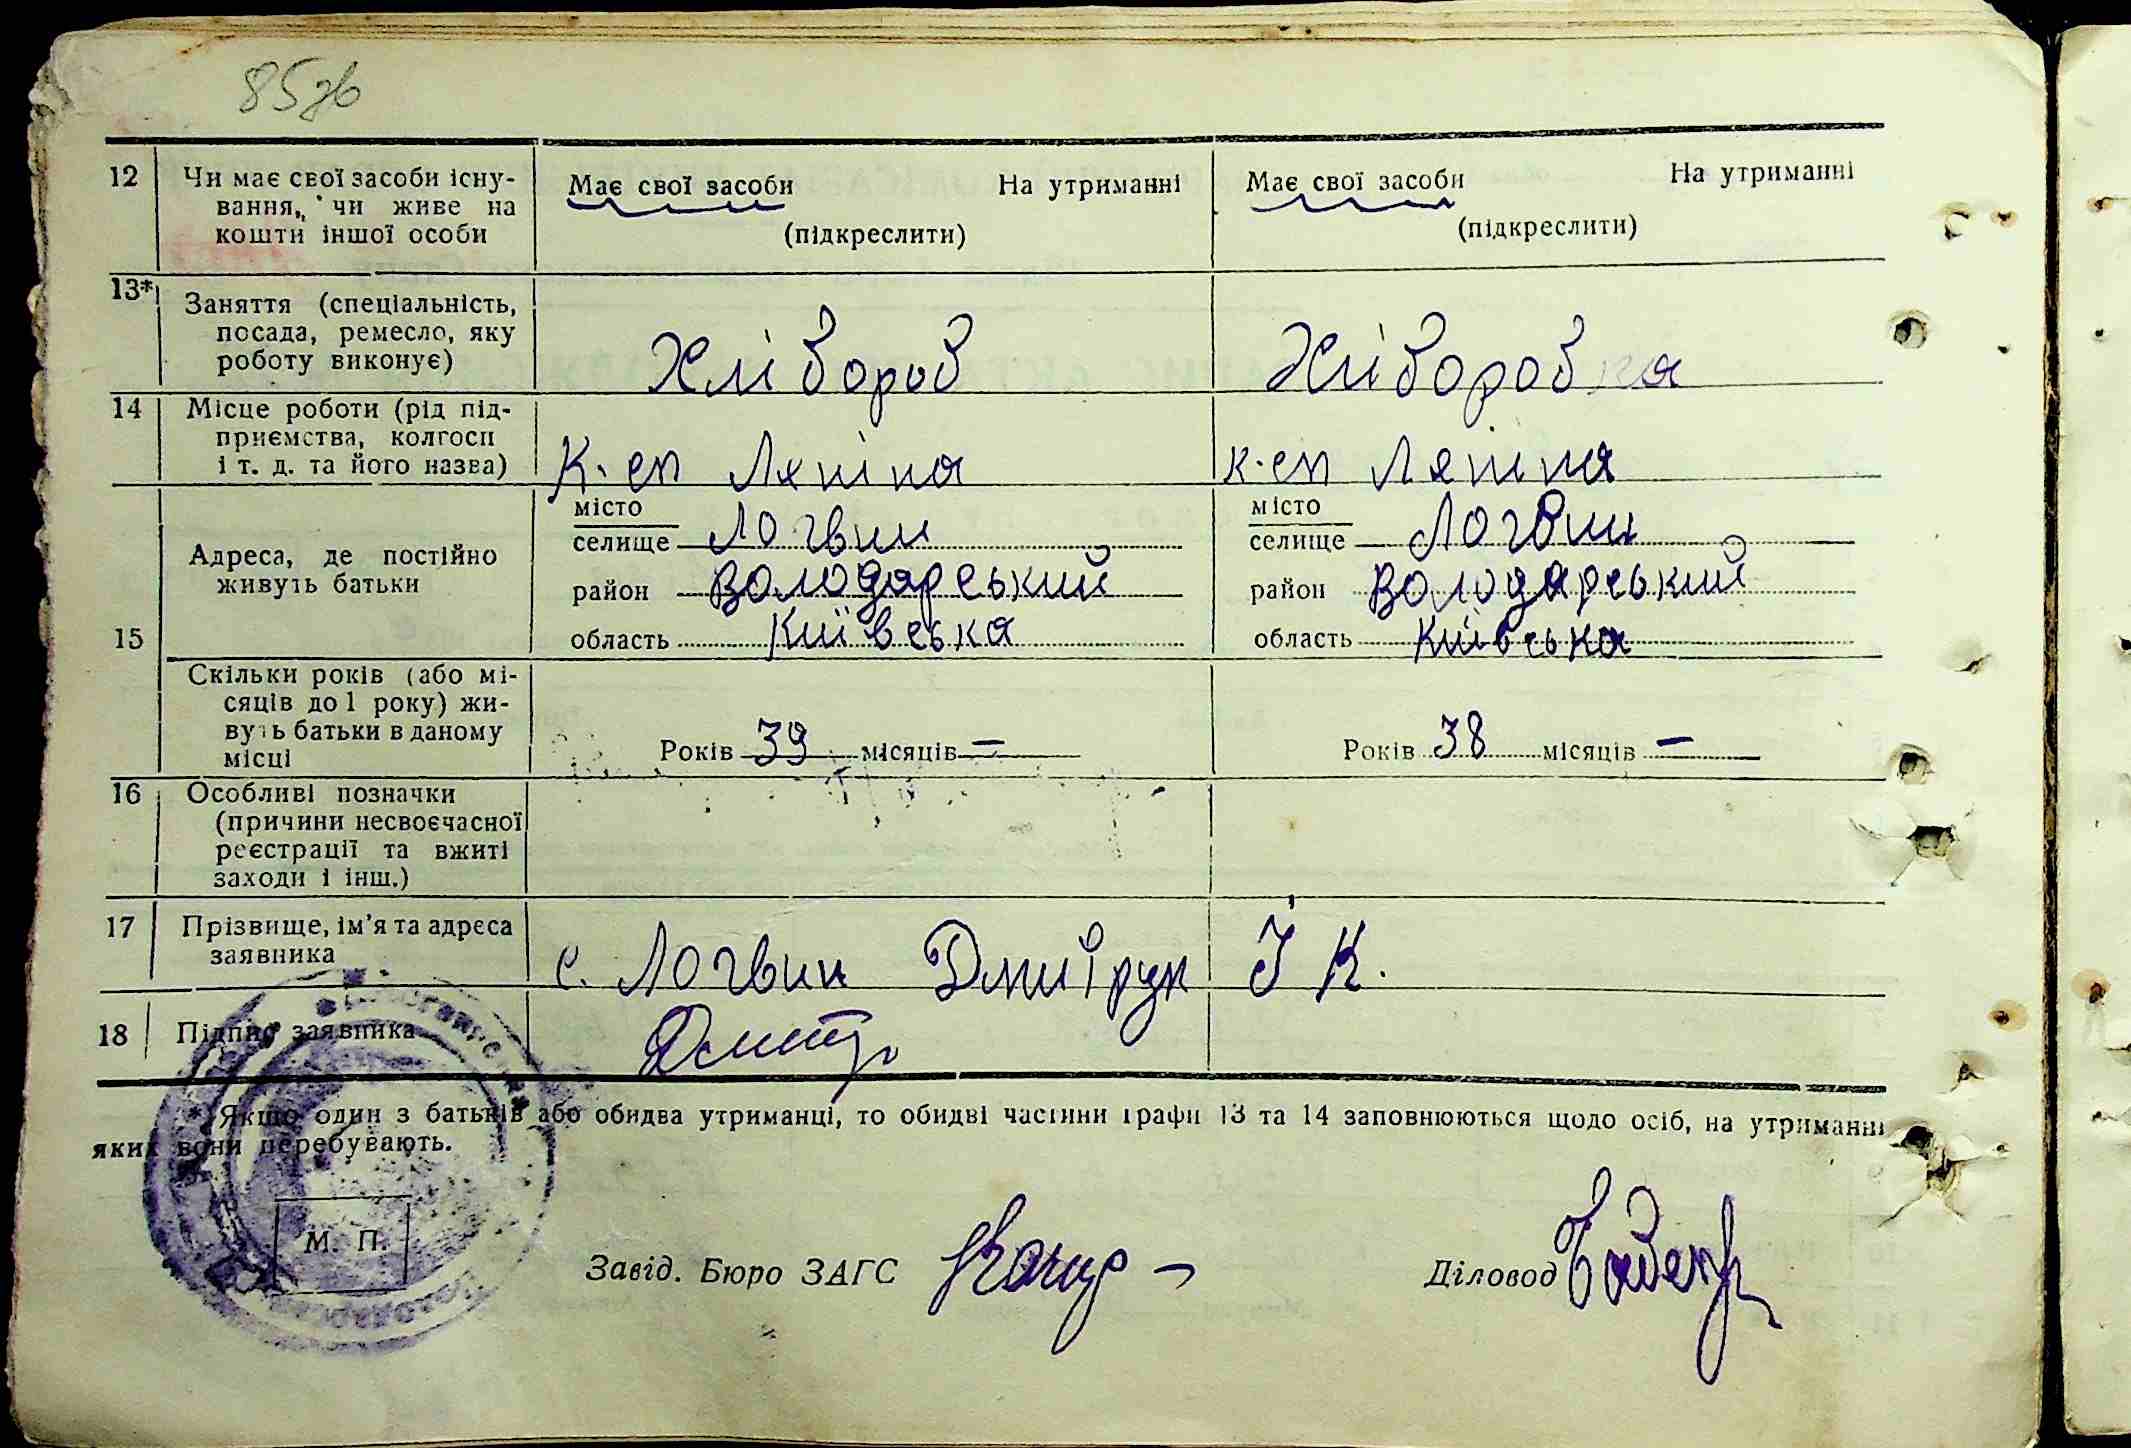 85зв
12 Чи має свої засоби існу- Має свої засоби На утриманні Має свої засоби На утриманні
вання, чи живе на
кошти іншої особи (підкреслити) (підкреслити)
13* Заняття (спеціальність,
посада, ремесло, яку
роботу виконує) Хлібороб Хлібороб ка
14 Місце роботи (рід під-
приємства, колгосп
і т. д. та його назва) К-сп Леніна к-сп Леніна
15 Адреса, де постійно
живуть батьки
місто місто
селище Логвин селище Логвин
район Володарський район Володарський
область Київська область Київська
Скільки років (або мі-
сяців до 1 року) жи-
вуть батьки в даному
місці Років 39 місяців — Років 38 місяців —
16 Особливі позначки
(причини несвоєчасної
реєстрації та вжиті
заходи і інш.)
17 Прізвище, ім'я та адреса
заявника с. Логвин Дмитрук І К.
18 Підпис заявника
* Якщо один з батьків або обидва утриманці, то обидві частини графи 13 та 14 заповнюються щодо осіб, на утриманні
яких вони перебувають.
М. П.
Завід. Бюро ЗАГС Діловод